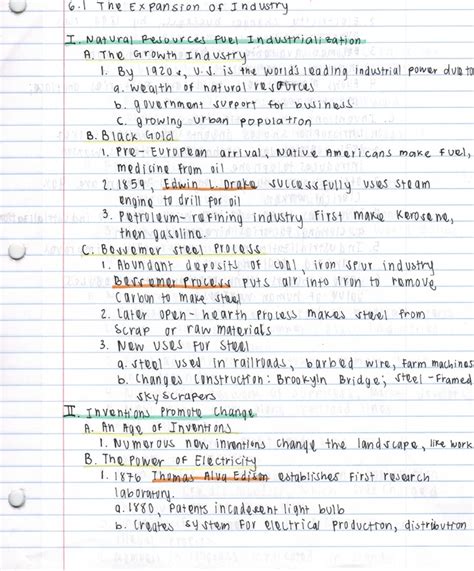 6.1 The Expansion of Industry
I. Natural Resources Fuel Industrialization
A. The Growth Industry
1. By 1920s, U.S. is the world's leading industrial power due to
a. wealth of natural resources
b. government support for business
c. growing urban population
B. Black Gold
1. Pre-European arrival, Native Americans make fuel,
medicine from oil
2. 1859, Edwin L. Drake successfully uses steam
engine to drill for oil
3. Petroleum-refining industry first make kerosene,
then gasoline.
C. Bessemer Steel Process
1. Abundant deposits of coal, iron spur industry
Bessemer Process puts air into iron to remove
carbon to make steel
2. Later open-hearth process makes steel from
scrap or raw materials
3. New uses for steel
a. steel used in railroads, barbed wire, farm machines
b. Changes Construction: Brookyln Bridge; steel-framed
skyscrapers
II. Inventions Promote Change
A. An Age of Inventions
1. Numerous new inventions change the landscape, life work
B. The Power of Electricity
1. 1876 Thomas Alva Edison establishes first research
laboratory.
a. 1880, Patents incadesent light bulb
b. Creates system for electrical production, distribution